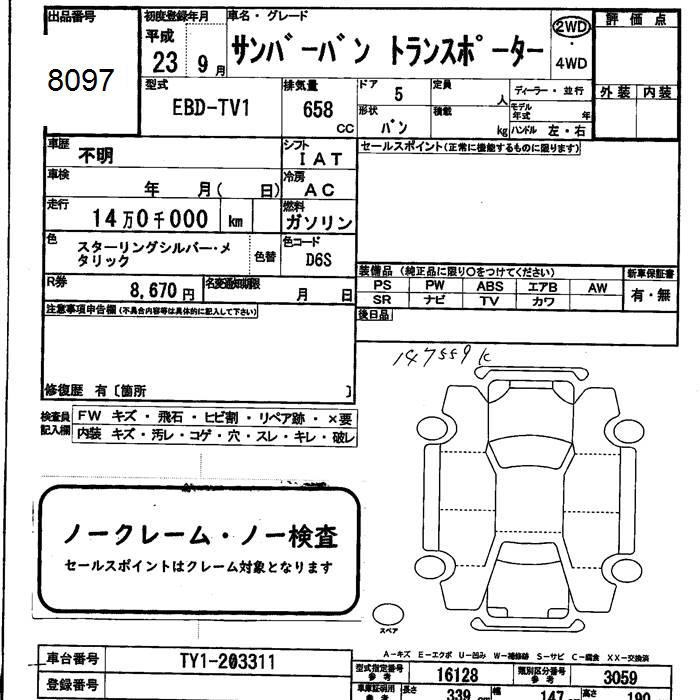 出品番号
8097
初度登録年月
平成
23 9月
車名・グレード
サンバーバン トランスポーター
2WD
・
4WD
評価点
外装 内装
型式
EBD-TV1
排気量
658
CC
ドア 5
形状 バン
定員 人
積載 kg
ディーラー・並行
モデル年式 年
ハンドル 左・右
車歴 不明
シフト IAT
セールスポイント(正常に機能するものに限ります)
車検 年 月( 日)
冷房 AC
走行 14万0千000 km
燃料 ガソリン
色 スターリングシルバー・メタリック
色替
色コード D6S
R券 8,670円
名変通知期限 月 日
装備品(純正品に限り○をつけてください)
PS PW ABS エアB AW
SR ナビ TV カワ
新車保証書
有・無
後日品
注意事項申告欄(不具合内容等は具体的に記入して下さい)
147559k
修復歴 有〔箇所 〕
検査員記入欄
FW キズ・飛石・ヒビ割・リペア跡・×要
内装 キズ・汚レ・コゲ・穴・スレ・キレ・破レ
ノークレーム・ノー検査
セールスポイントはクレーム対象となります
スペア
A-キズ E-エクボ U-凹み W-補修跡 S-サビ C-腐食 XX-交換済
車台番号 TY1-203311
登録番号
型式指定番号参考 16128
類別区分番号参考 3059
車庫証明用参考
長さ 339 cm
幅 147 cm
高さ 190 cm